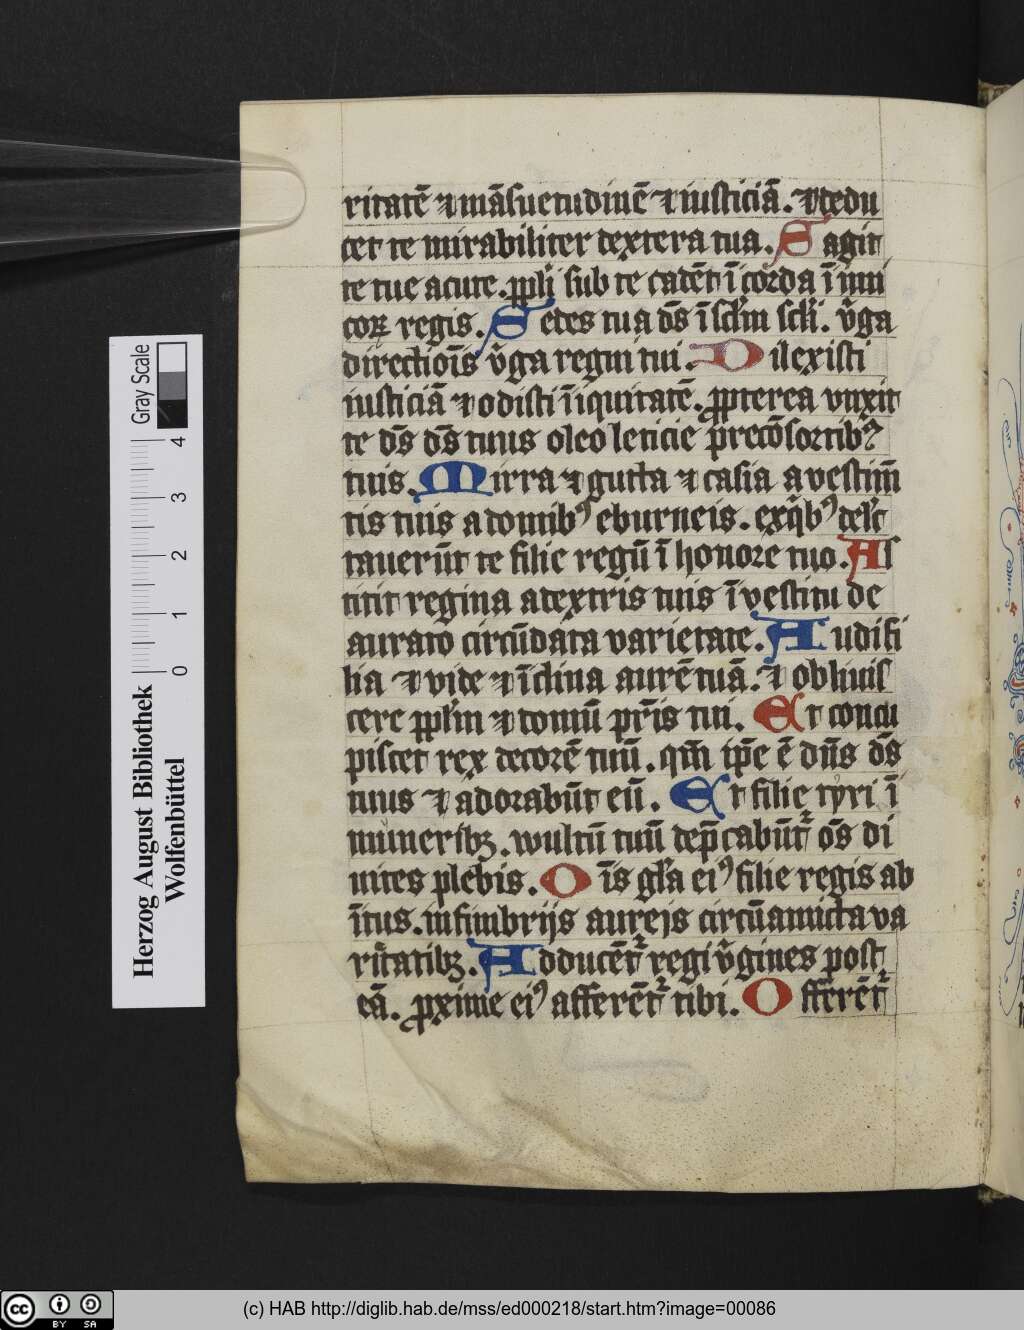 ritatē ⁊ mãsuetudinē ⁊ iusticiã. ⁊ dedu
cet te mirabiliter dextera tua. Sagit
te tue acute. ppl'i sub te cadēt ī corda īimi
coꝝ regis. Setes tua ds̄ ī sc̄lm scl'i. v̄ga
directiōis v̄ga regni tui. Dilexisti
iusticiã ⁊ odisti īiquitatē. ꝓpterea vnxit
te ds̄ ds̄ tuus oleo leticie p̄ cōsortibꝰ
tuis. Mirra ⁊ gutta ⁊ casia a vestim̄
tis tuis a domibꝰ eburneis. ex qͥbꝰ delc
tauerūt te filie regū ī honore tuo. As
titit regina a dextris tuis ī vestitu de
aurato circūdata varietate. Audi fi
lia ⁊ vide ⁊ īclina aurē tuã. ⁊ obliuis
cere ppl'm ⁊ domū pr̄is tui. Et concu
piscet rex decorē tuū. qm̄ ip̄e ē dn̄s ds̄
tuus ⁊ adorabūt eū. Et filie tyri ī
muneribꝫ. wultū tuū dep̄cabūt᷑ os̄ di
uites plebis. Oīs gl'a eiꝰ filie regis ab
ītus. in fimbrijs aureis circūamicta va
rītatibꝫ. Adducēt᷑ regi v̄gines post
eã. ꝓxime eiꝰ afferēt᷑ tibi. Offerēt᷑
Herzog August Bibliothek
Wolfenbüttel
0 1 2 3 4
Gray Scale
cc BY SA
(c) HAB http://diglib.hab.de/mss/ed000218/start.htm?image=00086